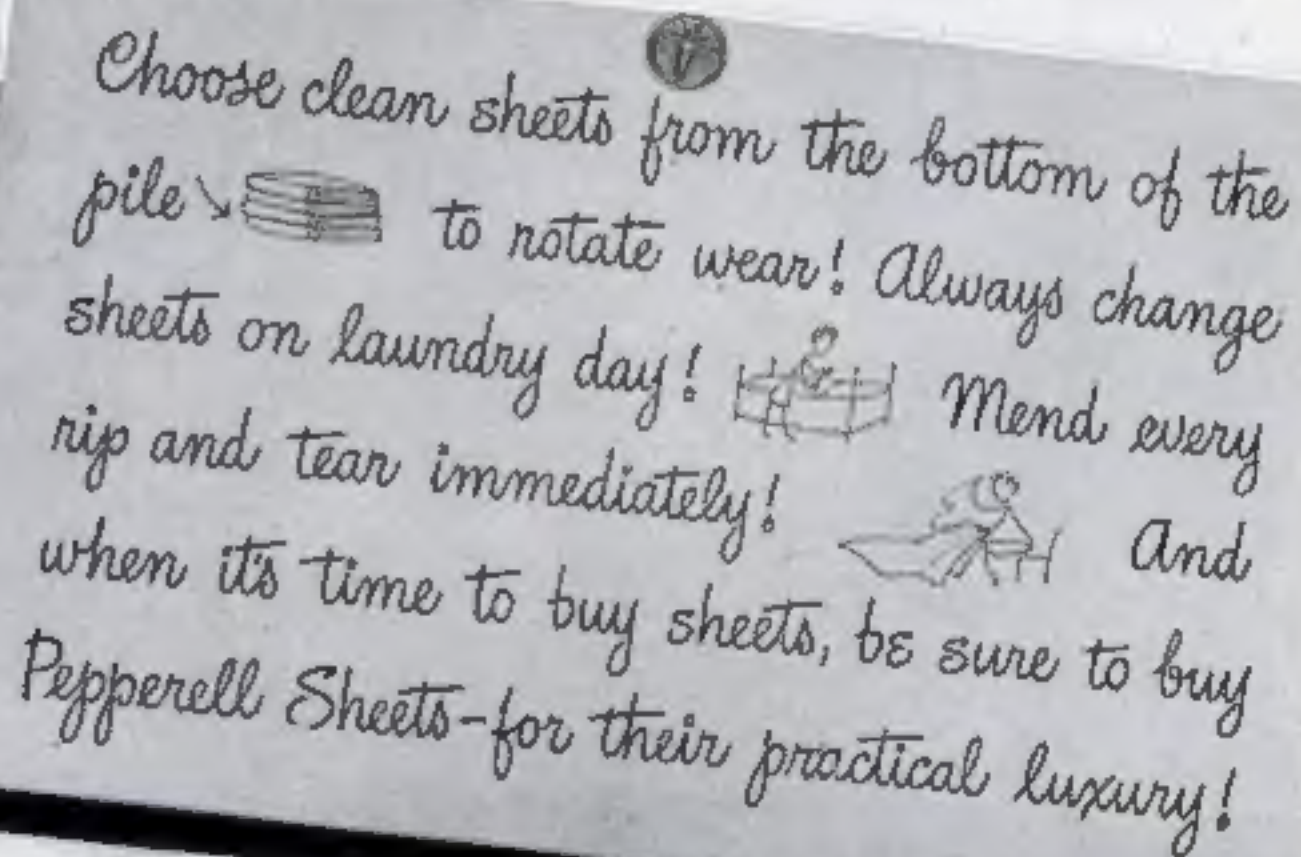 V
Choose clean sheets from the bottom of the
pile to rotate wear! Always change
sheets on laundry day! Mend every
rip and tear immediately! And
when it's time to buy sheets, be sure to buy
Pepperell Sheets-for their practical luxury!